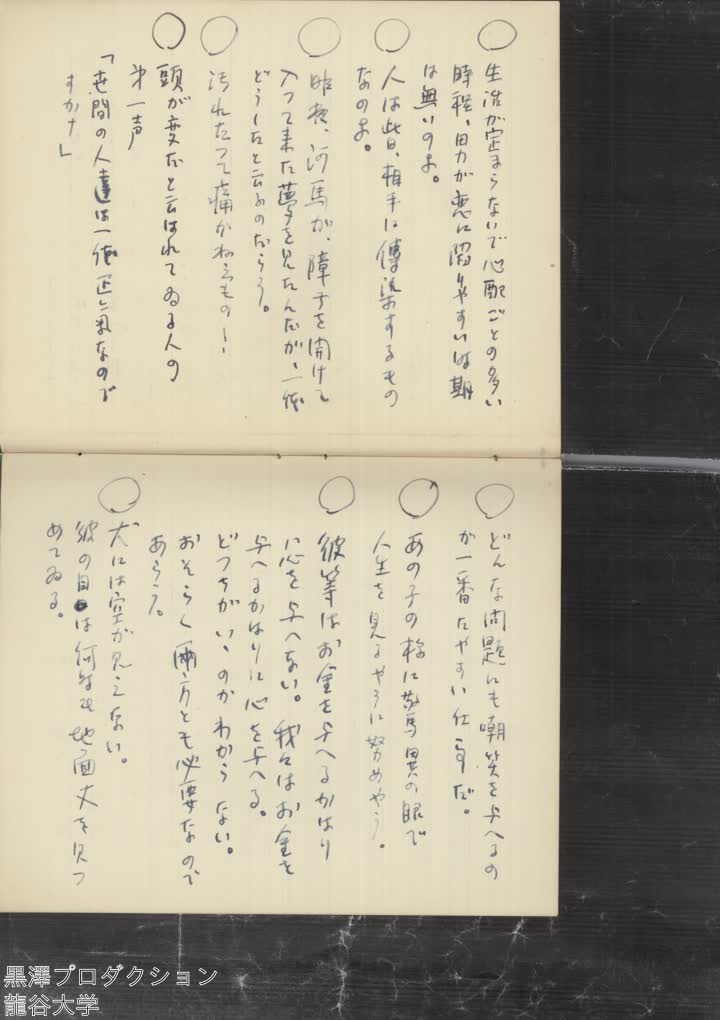 ○
生活が定まらないで心配ごとの多い
時程、男が恋に陥りやすい時期
は無いのよ。
○
人は皆、相手に傳染するもの
なのよ。
○
昨夜、河馬が、障子を開けて
入って来た夢を見たんだが、一体
どうしたと云ふのだらう。
○
汚れたって痛かねえもの——
○
頭が変だと云はれてゐる人の
第一声
「世間の人達は一体正気なので
すかナ」
○
どんな問題にも嘲笑を与へるの
が一番たやすい仕事だ。
○
あの子の様に驚異の眼で
人生を見るやうに努めやう。
○
彼等はお金を与へるかはり
に心を与へない。我々はお金を
与へるかはりに心を与へる。
どっちがいゝのかわからない。
おそらく両方とも必要なので
あらう。
○
犬には空が見えない。
彼の目は何時も地面丈を見つ
めてゐる。
黒澤プロダクション
龍谷大学